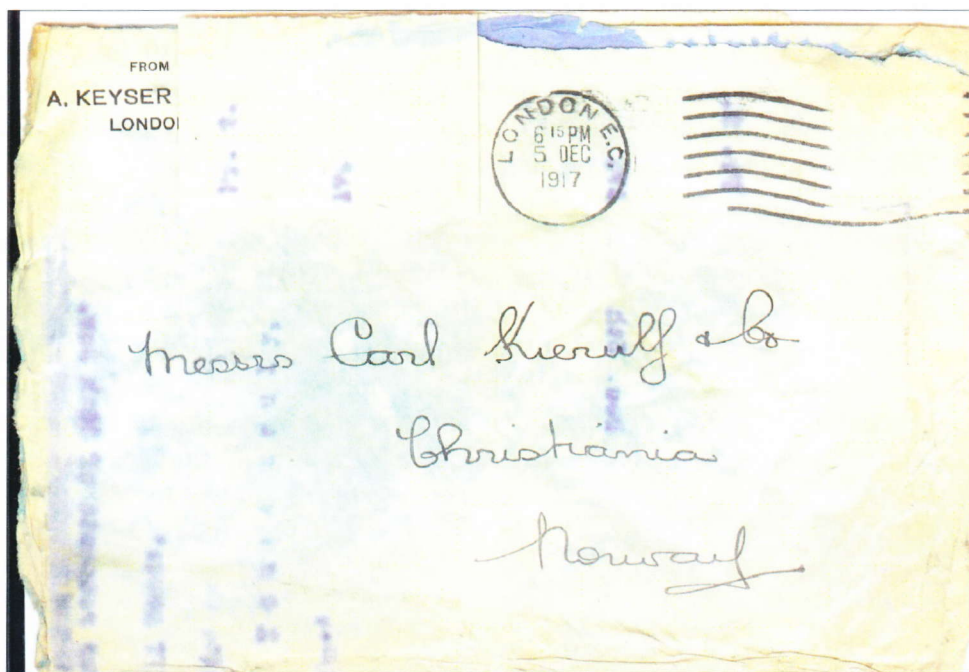 FROM
A. KEYSER
LONDO
LONDON E.C.
6 15 PM
5 DEC
1917
Messrs Carl Kierulf & Co
Christiánia
Norway